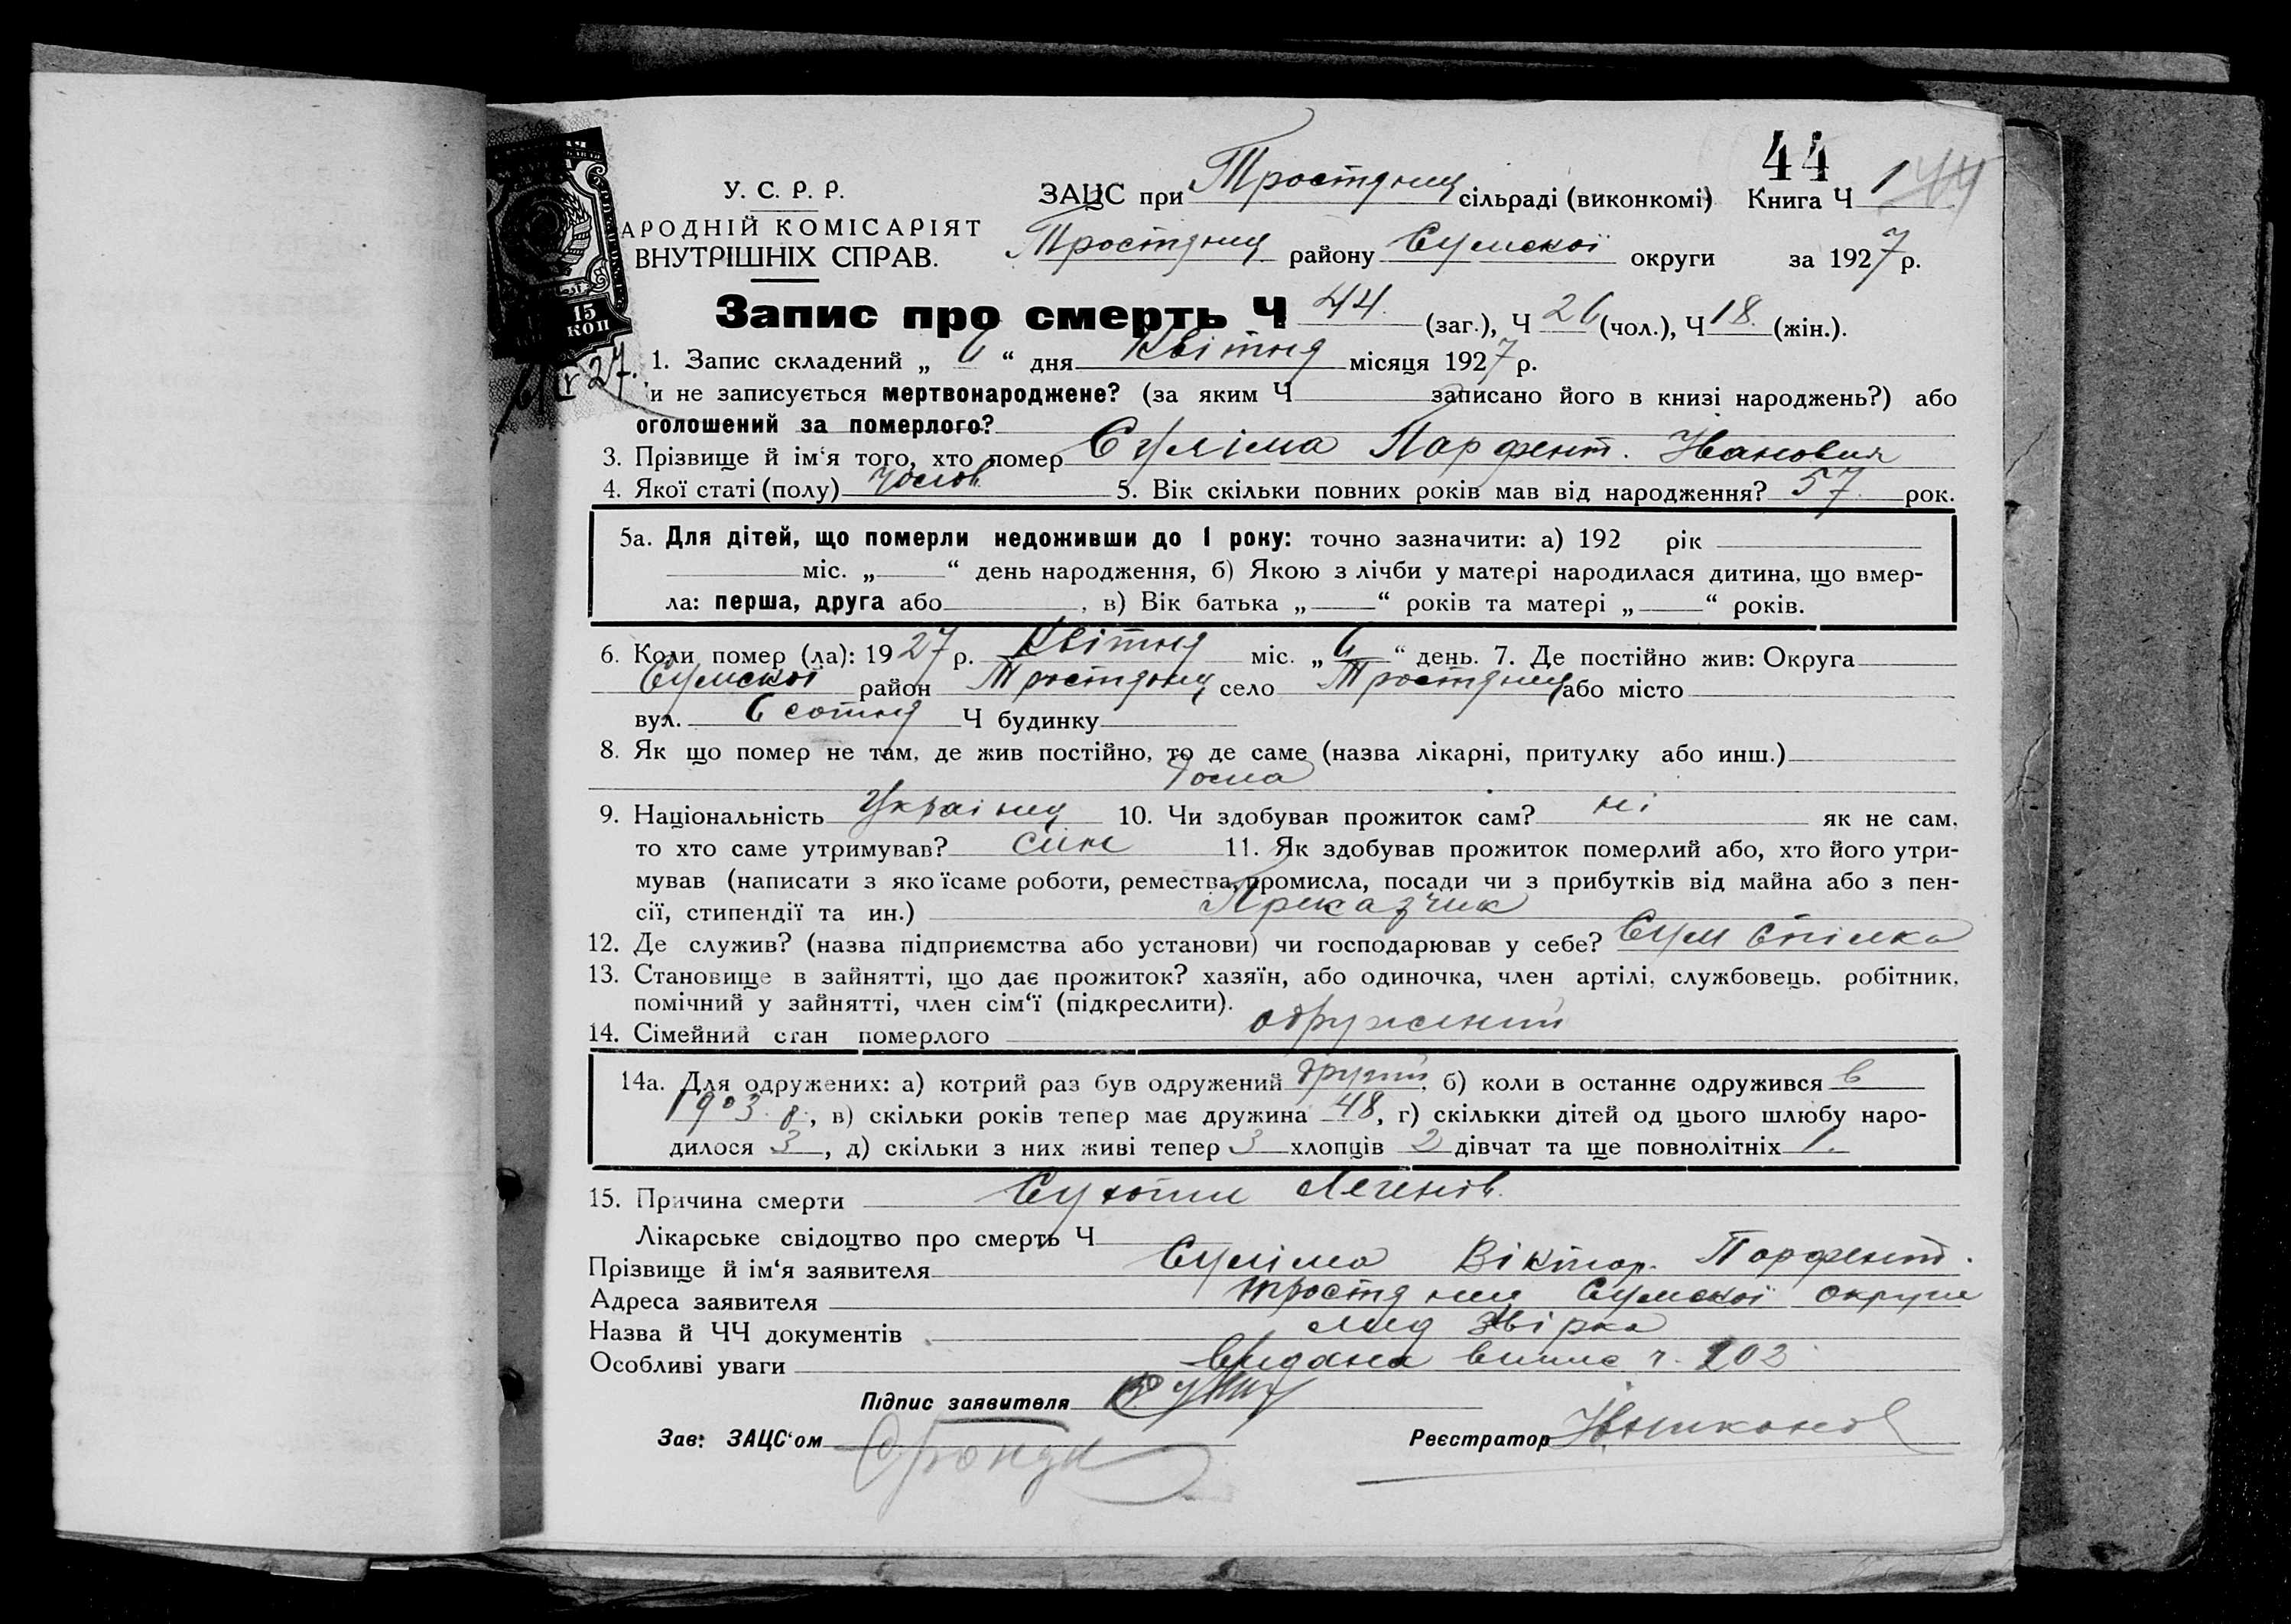 44
У. С. Р. Р.
АРОДНІЙ КОМІСАРІЯТ
ВНУТРІШНІХ СПРАВ.
15
КОП
ЗАЦС при Тростянец сільраді (виконкомі) Книга Ч 1
Тростянец району Сумської округи за 1927 р.
Запис про смерть Ч 44 (заг.), Ч 26 (чол.), Ч 18 (жін.).
1. Запис складений „ 6 “ дня Квітня місяця 1927 р.
и не записується мертвонароджене? (за яким Ч записано його в книзі народжень?) або
оголошений за померлого?
3. Прізвище й ім‘я того, хто помер Суліма Парфент. Иванович
4. Якої статі (полу) чолов. 5. Вік скільки повних років мав від народження? 57 рок.
5а. Для дітей, що померли недоживши до 1 року: точно зазначити: а) 192 рік
міс. „ “ день народження, б) Якою з лічби у матері народилася дитина, що вмер-
ла: перша, друга або , в) Вік батька „ “ років та матері „ “ років.
6. Коли помер (ла): 1927 р. Квітня міс. „ 6 “ день. 7. Де постійно жив: Округа
Сумскої район Тростянец село Тростянец або місто
вул. 6 сотня Ч будинку
8. Як що помер не там, де жив постійно, то де саме (назва лікарні, притулку або инш.)
дома
9. Національність Українец 10. Чи здобував прожиток сам? ні як не сам,
то хто саме утримував? син 11. Як здобував прожиток померлий або, хто його утри-
мував (написати з якоїсаме роботи, ремества, промисла, посади чи з прибутків від майна або з пен-
сії, стипендії та ин.) Приказчик
12. Де служив? (назва підприємства або установи) чи господарював у себе? Сум Спілка
13. Становище в зайнятті, що дає прожиток? хазяїн, або одиночка, член артілі, службовець, робітник,
помічний у зайнятті, член сім‘ї (підкреслити).
14. Сімейний стан померлого одружений
14а. Для одружених: а) котрий раз був одружений другий, б) коли в останнє одружився в
1903 р., в) скільки років тепер має дружина 48, г) скількки дітей од цього шлюбу наро-
дилося 3, д) скільки з них живі тепер 3 хлопців 2 дівчат та ще повнолітніх 1.
15. Причина смерти Сухоти Легенів.
Лікарське свідоцтво про смерть Ч
Прізвище й ім‘я заявителя Суліма Віктор. Парфент.
Адреса заявителя Тростянец Сумской округи
Назва й ЧЧ документів
Особливі уваги Видана випис ч. 202
Підпис заявителя
Зав: ЗАЦС‘ом
Реєстратор